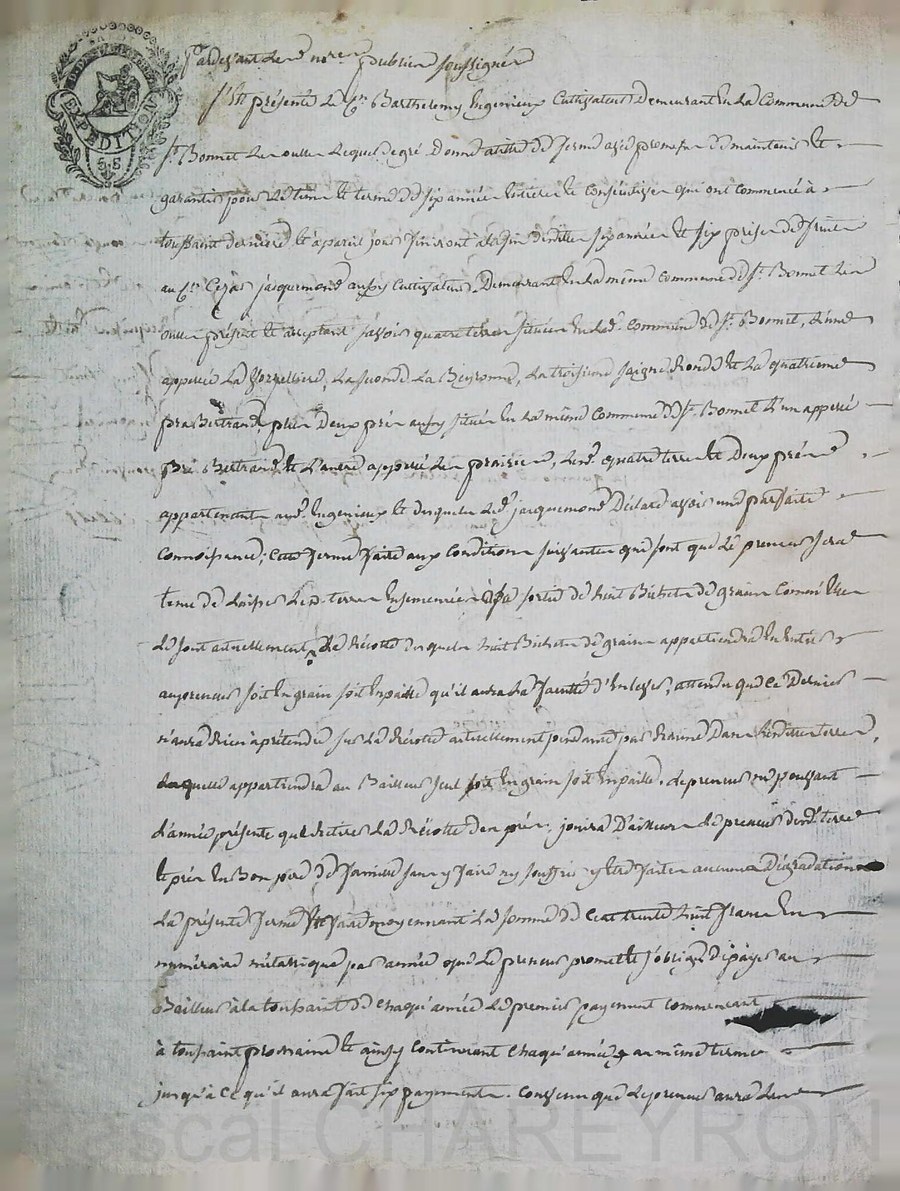 EXPEDITION
Pardevant le nore public soussigné
S'est présenté le Cn. Barthelemy Ingenieux Cultivateur demeurant en la Commune de
St. Bonnet les oulles lequel de gré donne à titre de ferme avec promesse de maintenir et
garantir pour le tems et terme de six années entieres et consécutives qui ont commencé à
toussaint derniere et à pareil jour finiront à la fin desdittes six années et six prises de fruits
au Cn. Cezar jacquemond aussy Cultivateur demeurant en la même commune de St. Bonnet les
oulles présent et acceptant savoir quatre terres situées en lad. commune de St. Bonnet, l'une
appellée la, la seconde la Beyronne, la troisieme saigne ronde et la quatrieme
pra Bertrand, plus deux prés aussy situés en la même commune de St. Bonnet l'un appellé
pré Bertrand et l'autre appellé les prairies, lesd. quatre terres et deux prés
appartenants aud. Ingenieux et desquels led. jacquemond déclare avoir une parfaite
connoissance; cette ferme faite aux conditions suivantes qui sont que le preneur sera
tenu de laisser lesd. terres ensemencées à sa sortie de huit Bichets de grains comme elles
le sont actuellement, la Récolte desquels huit Bichets de grains appartiendra en entier
au preneur soit en grain soit en paille qu'il aura la faculté d'enlever, attendu que ce dernier
n'aura rien à prétendre sur la Récolte actuellement pendante par Racine dans lesdittes terres,
laquelle appartiendra au Bailleur seul soit en grain soit en paille. le preneur ne pouvant
l'année présente que retirer la Récolte des prés. jouira d'ailleurs le preneur desd. terres
et prés en Bon pere de famille sans y faire ny souffrir y etre faites aucunes dégradations
La présente ferme est faite moyennant la somme de Cent trente huit francs en
numéraire métallique par année que le preneur promet et s'oblige de payer au
Bailleur à la toussaint de chaqu'année le premier payement commencant
à toussaint prochaine et ainsy continuant chaqu'année au même terme
jusqu'à ce qu'il aura fait six payements. Convenu que le preneur aura
Pascal CHAREYRON